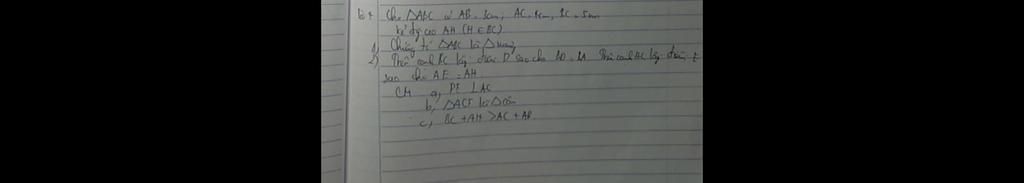 b4 Cho ΔABC có AB = 3cm, AC = 4cm, BC = 5cm
kẻ đg cao AH (H ∈ BC)
1) Chứng tỏ ΔABC là Δ vuông
2) Trên cạnh BC lấy điểm D sao cho BD = BA. Trên cạnh AC lấy điểm E
sao cho AE = AH
CM a, DE ⊥ AC
b, ΔACF là Δ cân
c, BC + AH > AC + AB